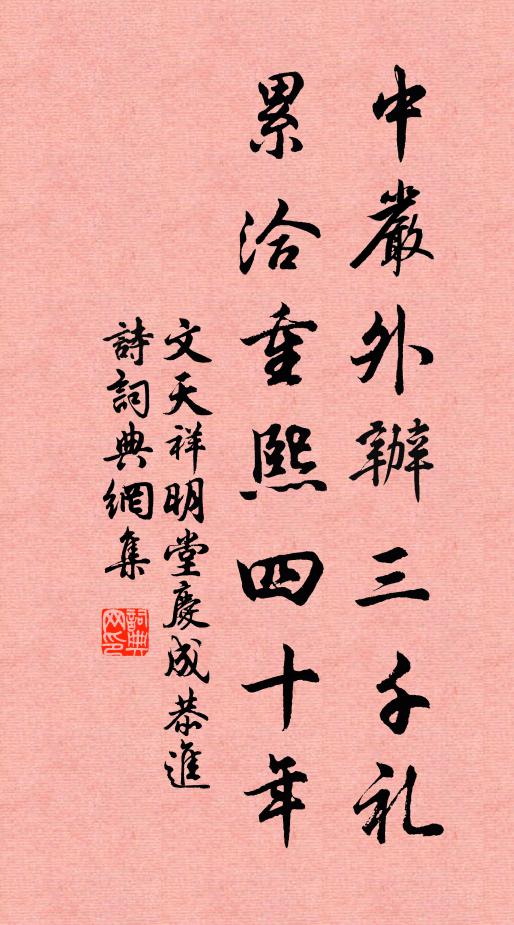 中嚴外辦三千礼
累洽重熙四十年
文天祥明堂慶成恭進
詩詞典網集
詞典
网印